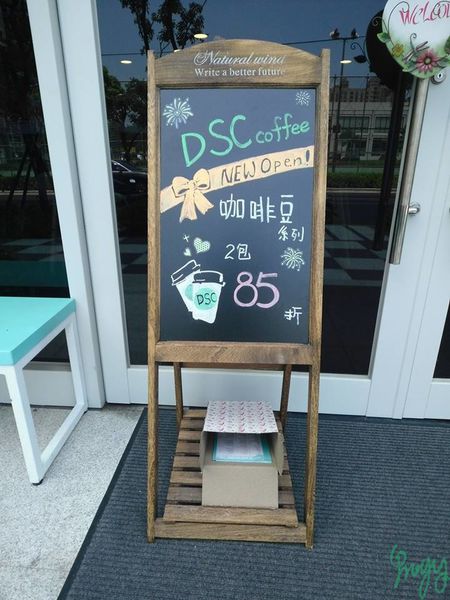 Natural wind
Write a better future
WELCO
DSC coffee
NEW Open!
咖啡豆
系列
2包
85
折
DSC